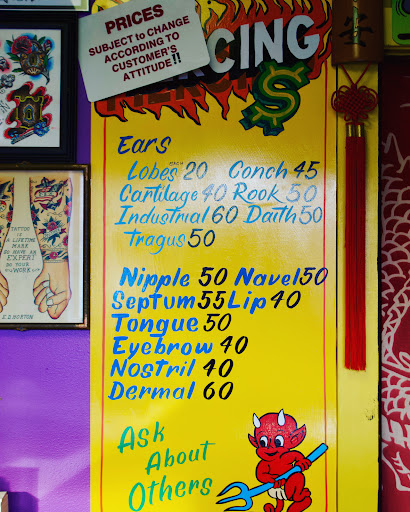 PRICES
SUBJECT to CHANGE
ACCORDING TO
CUSTOMER'S
ATTITUDE!!
$
Ears
Lobes EACH 20 Conch 45
Cartilage 40 Rook 50
Industrial 60 Daith 50
Tragus 50
Nipple 50 Navel 50
Septum 55 Lip 40
Tongue 50
Eyebrow 40
Nostril 40
Dermal 60
Ask
About
Others
TATTOO
IS A
LIFETIME
MARK
SO HAVE
AN
EXPERT
DO YOUR
WORK